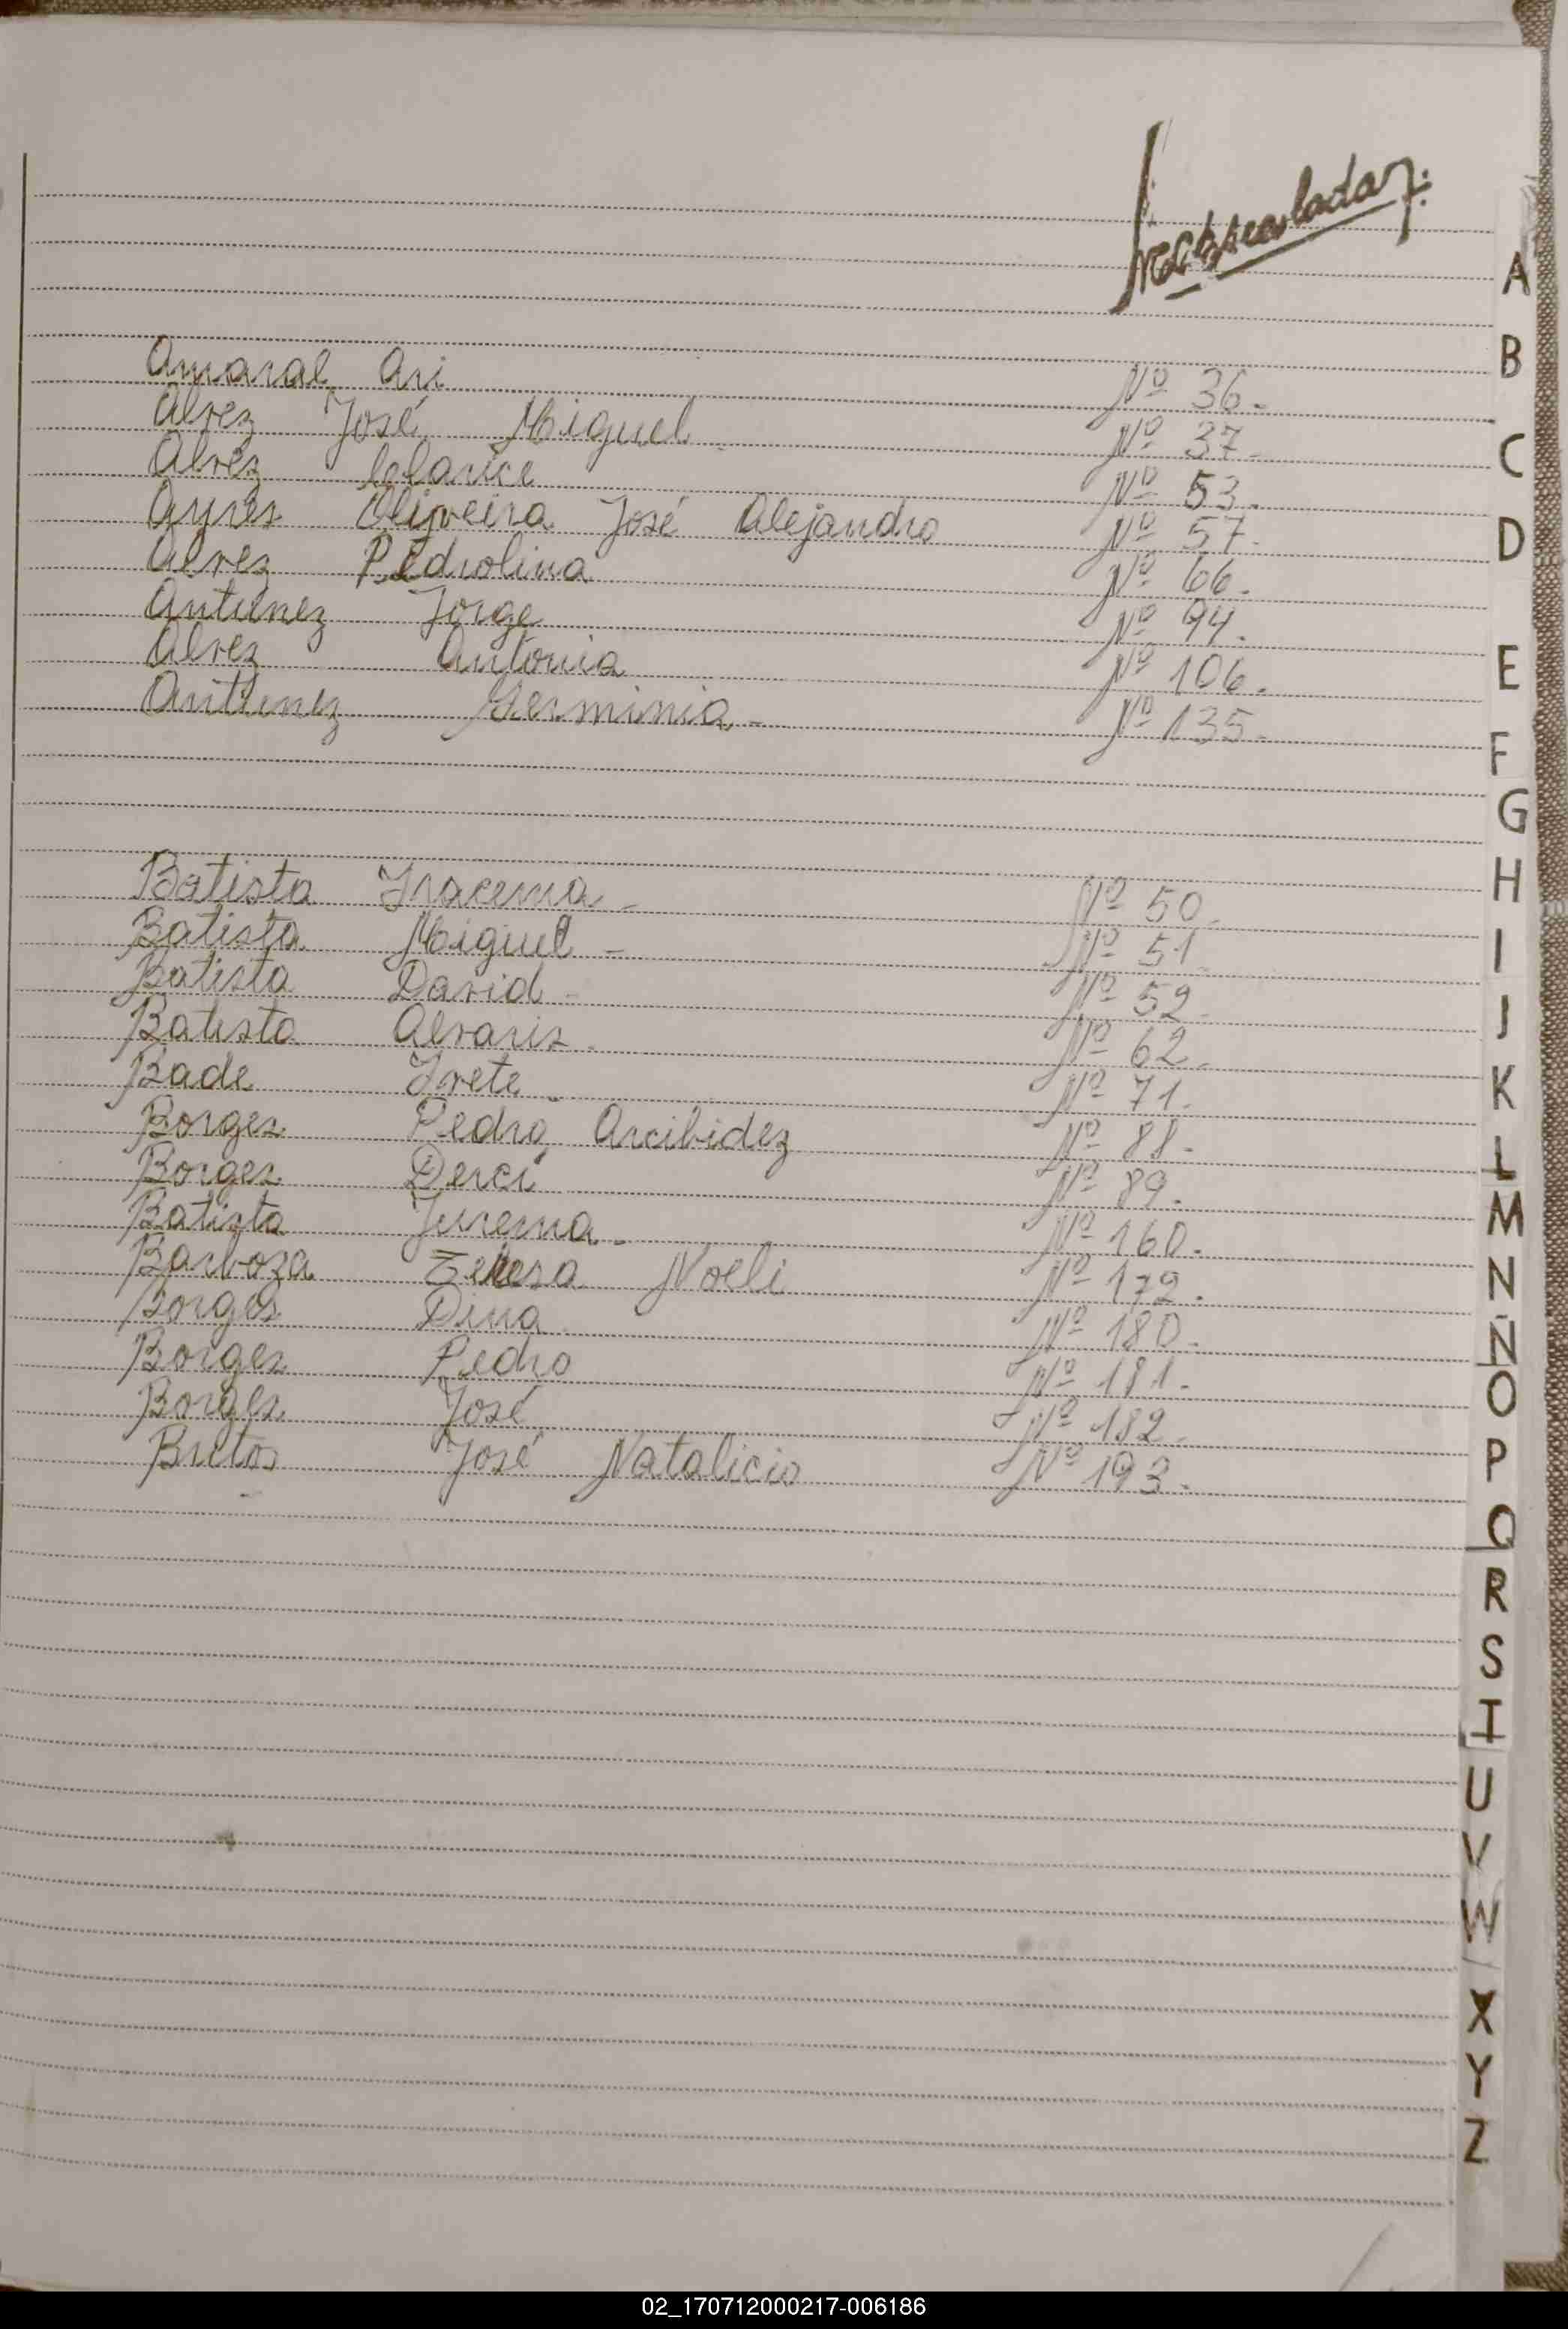 A
B
Amaral Ari Nº 36.
Alvez José Miguel Nº 37.
C
Alvez Clarice Nº 53.
Ayres Oliveira José Alejandro Nº 57.
D
Alvez Pedrolina Nº 66.
Antunez Jorge Nº 94.
Alvez Antonia Nº 106.
E
Antunez Herminia Nº 135.
F
G
H
Batista Iracema Nº 50.
Batista Miguel Nº 51.
I
Batista David Nº 52.
J
Batista Alvaris Nº 62.
Bade Ivete Nº 71.
K
Borges Pedro Arcibidez Nº 88.
L
Borges Derci Nº 89.
M
Batista Jurema Nº 160.
Barboza Tereza Noeli Nº 172.
N
Borges Dina Nº 180.
Ñ
Borges Pedro Nº 181.
O
Borges José Nº 182.
P
Britos José Natalicio Nº 193.
Q
R
S
T
U
V
W
X
Y
Z
02_170712000217-006186